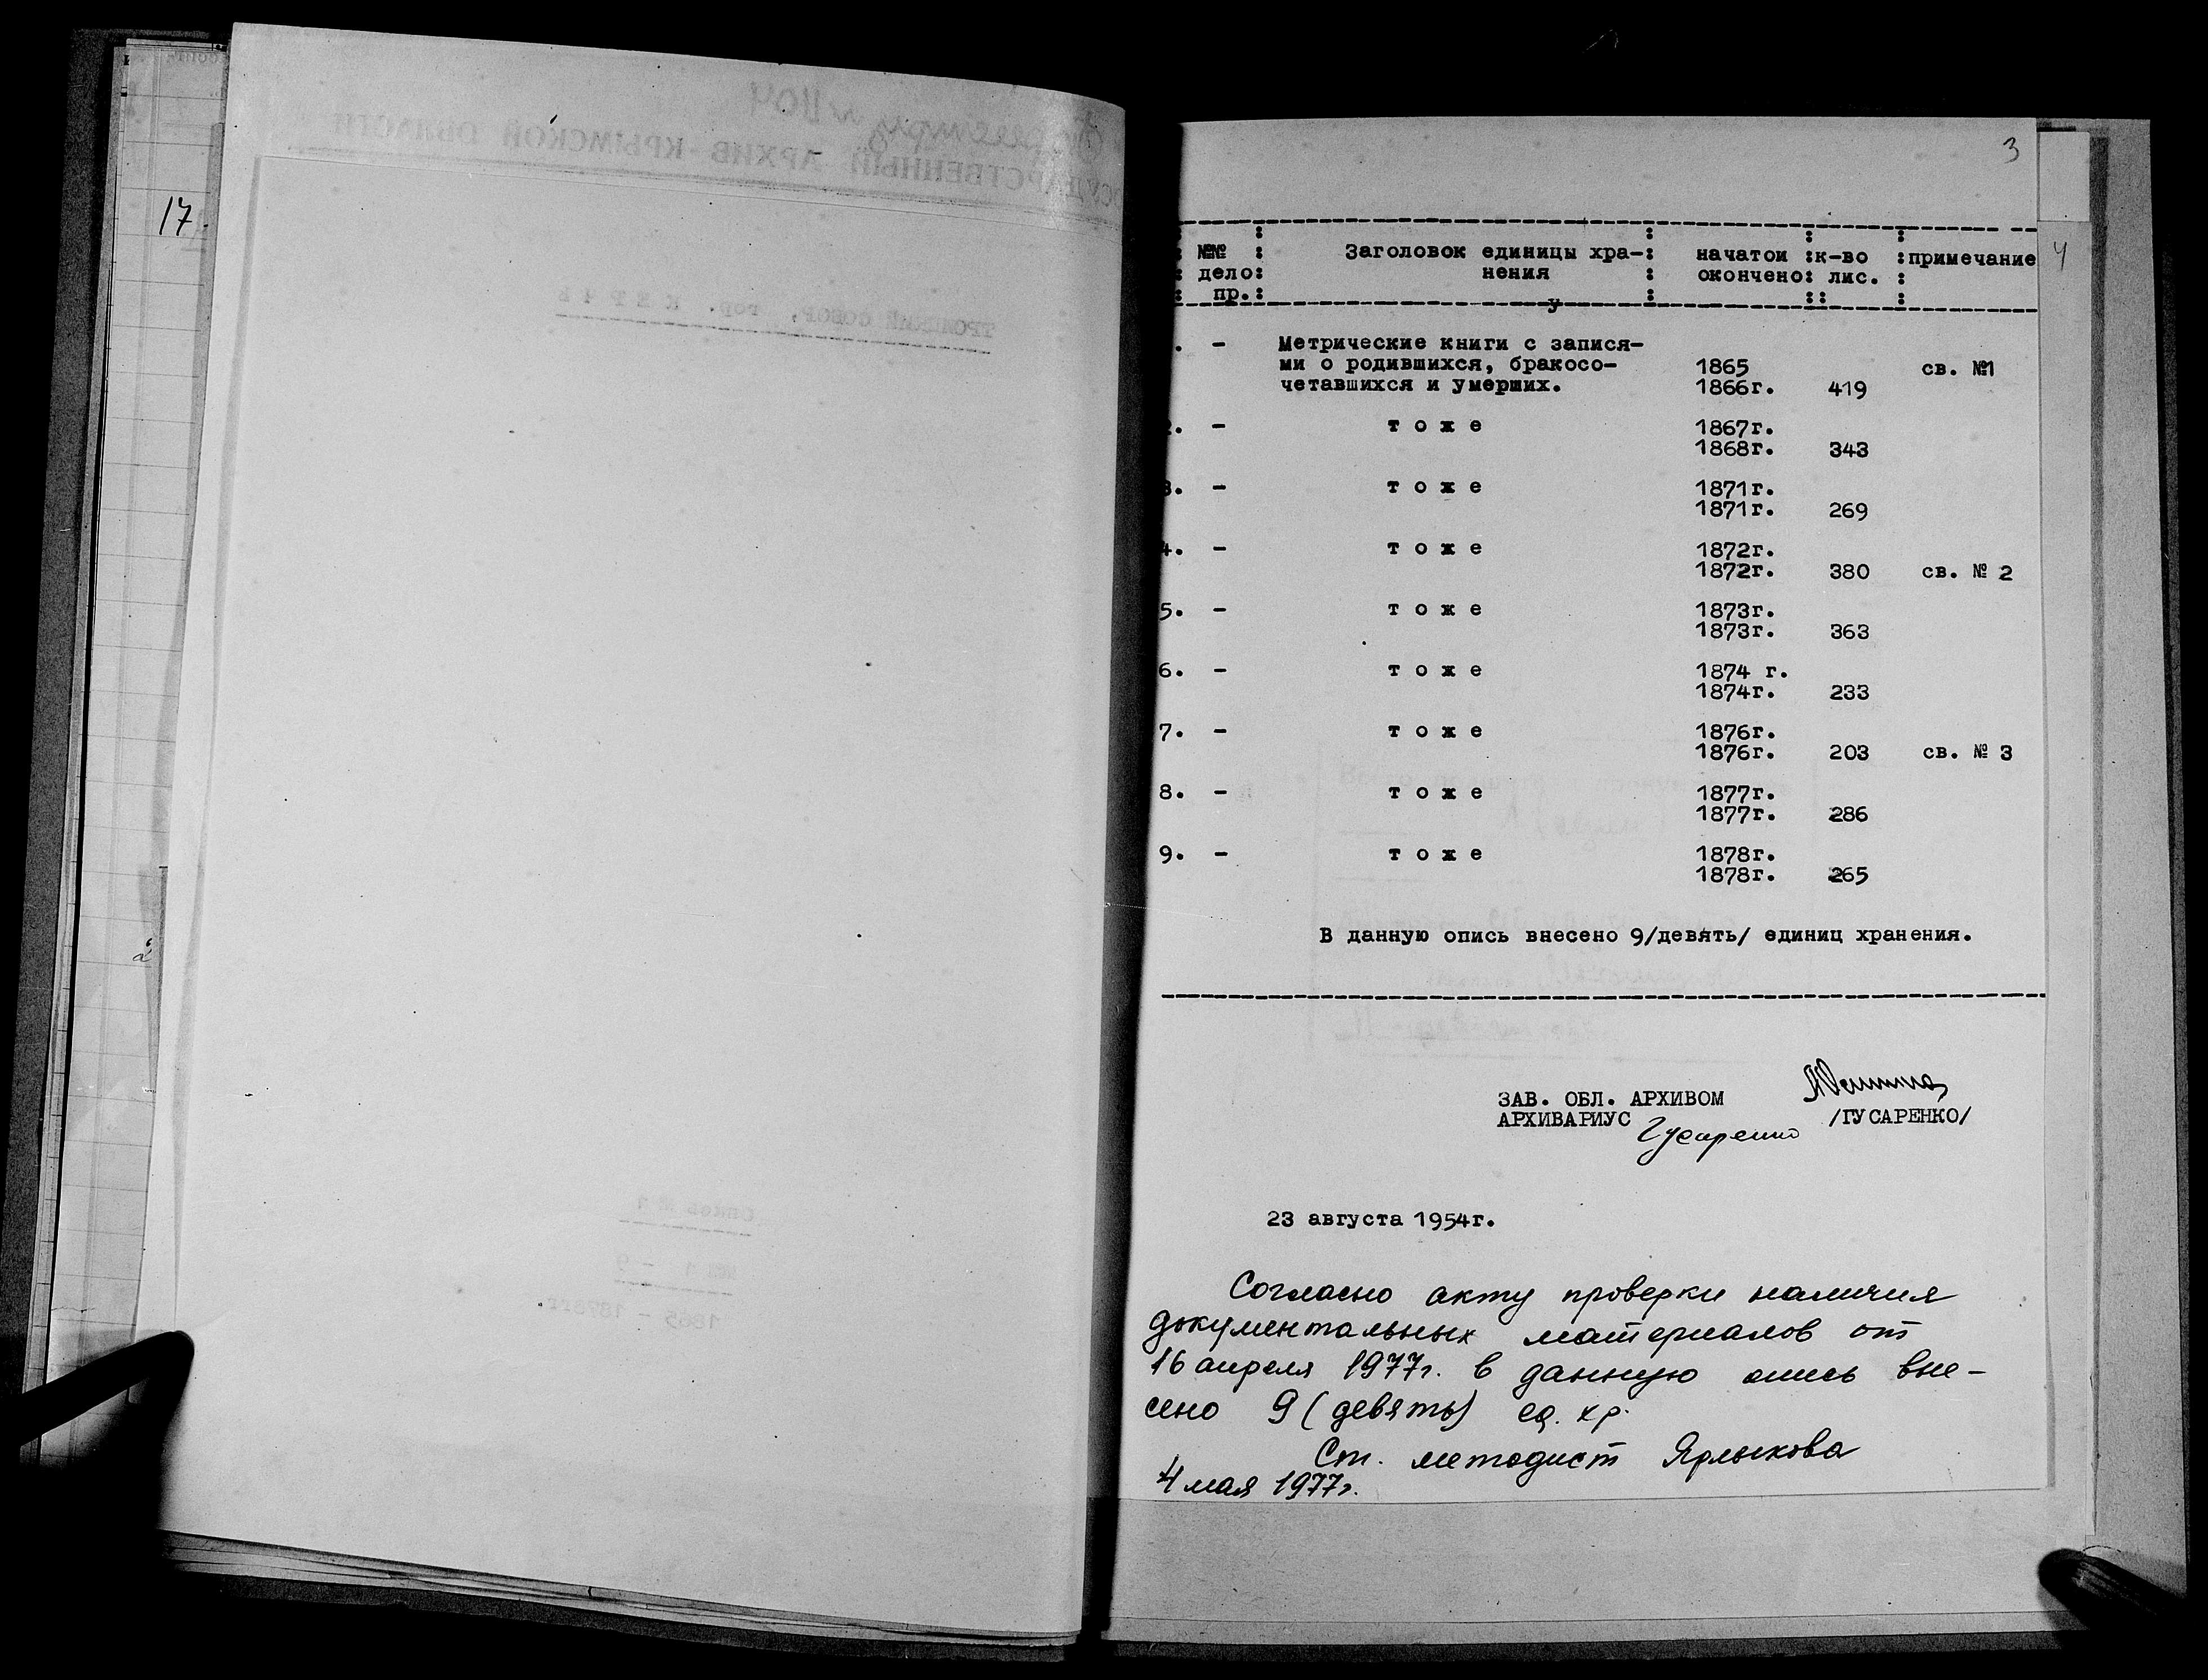 17.
3
4
№№ : Заголовок единицы хра-: начатои :к-во :примечание
: дело: нения : окончено: лис. :
: пр.: у : :: :
. - Метрические книги с запися-
ми о родившихся, бракосо- 1865 св. №1
четавшихся и умерших. 1866г. 419
2. - т о ж е 1867г.
1868г. 343
3. - т о ж е 1871г.
1871г. 269
4. - т о ж е 1872г.
1872г. 380 св. № 2
5. - т о ж е 1873г.
1873г. 363
6. - т о ж е 1874 г.
1874г. 233
7. - т о ж е 1876г.
1876г. 203 св. № 3
8. - т о ж е 1877г.
1877г. 286
9. - т о ж е 1878г.
1878г. 265
В данную опись внесено 9/девять/ единиц хранения.
ЗАВ. ОБЛ. АРХИВОМ
АРХИВАРИУС Гусаренко /ГУСАРЕНКО/
23 августа 1954г.
Согласно акту проверки наличия
документальных материалов от
16 апреля 1977г. в данную опись вне-
сено 9 (девять) ед. хр.
Ст. методист Ярлыкова
4 мая 1977г.